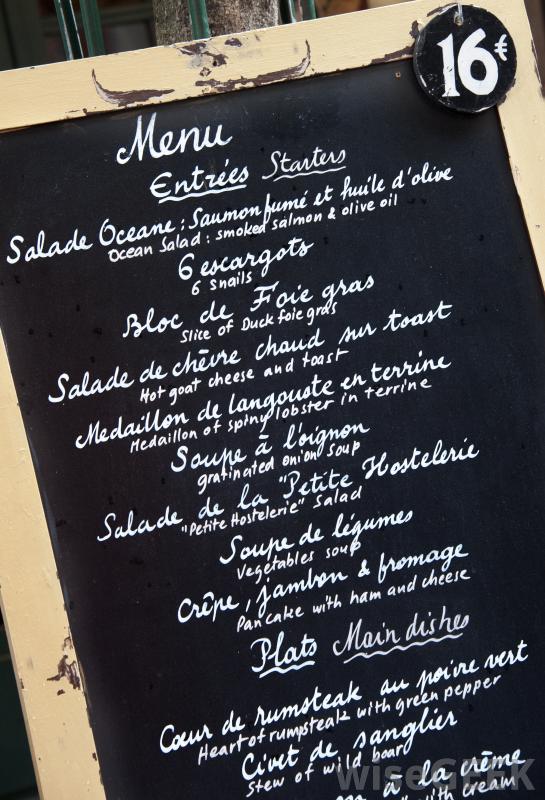 16€
Menu
Entrées Starters
Salade Oceane : Saumon fumé et huile d'olive
Ocean Salad : smoked salmon & olive oil
6 escargots
6 snails
Bloc de Foie gras
Slice of Duck foie gras
Salade de chèvre chaud sur toast
Hot goat cheese and toast
Medaillon de langouste en terrine
Medaillon of spiny lobster in terrine
Soupe à l'oignon
gratinated onion soup
Salade de la "Petite Hostelerie
"Petite Hostelerie" Salad
Soupe de légumes
Vegetables soup
Crêpe, jambon & fromage
Pancake with ham and cheese
Plats Main dishes
Cœur de rumsteak au poivre vert
Heart of rumpsteak with green pepper
Civet de sanglier
Stew of wild boar
à la crème
with cream
wiseGEEK